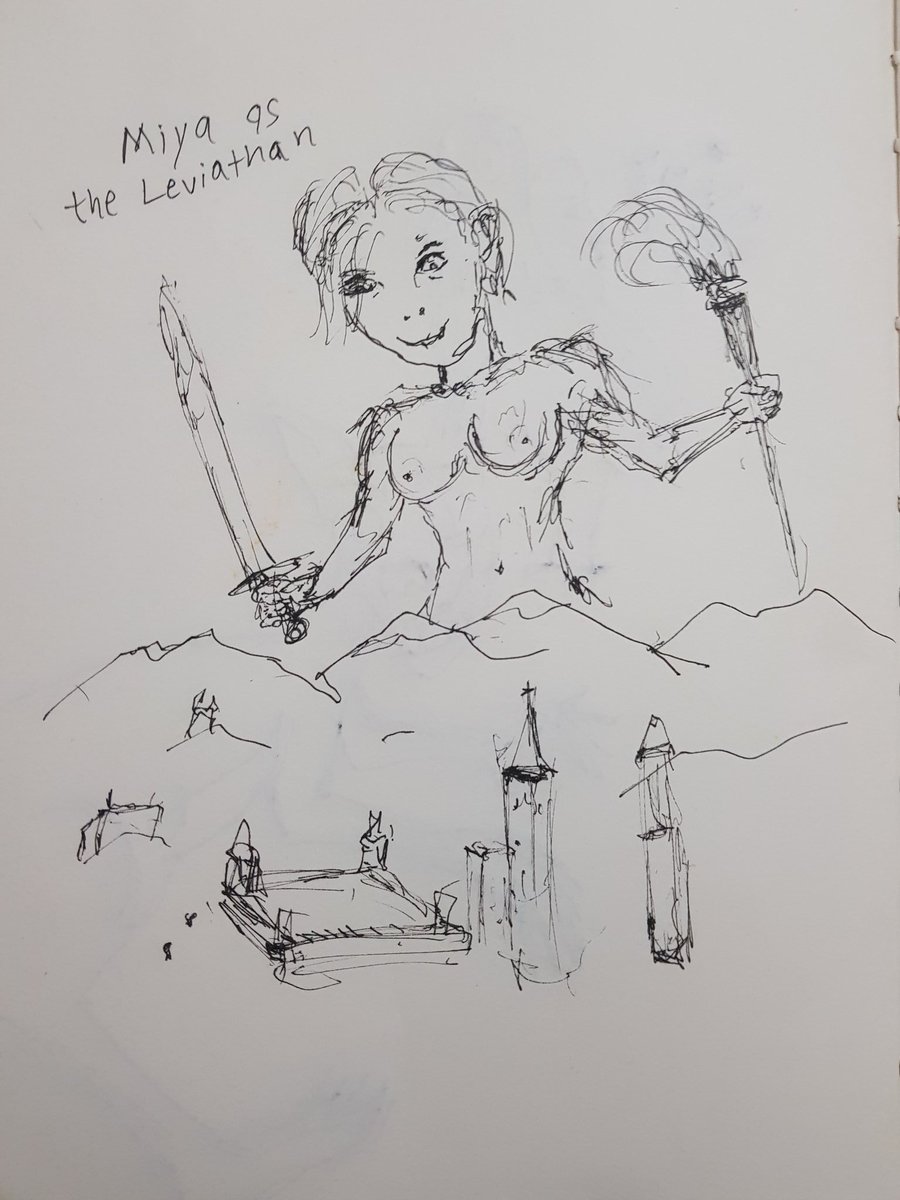 Miya as
the Leviathan